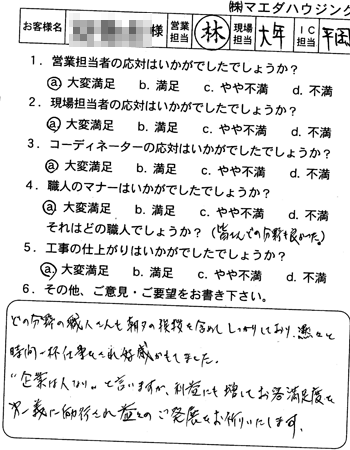 ㈱マエダハウジング
お客様名 様 営業担当 林 現場担当 大年 IC担当 平岡
1．営業担当者の応対はいかがでしたでしょうか？
ⓐ 大変満足 b. 満足 c. やや不満 d. 不満
2．現場担当者の応対はいかがでしたでしょうか？
ⓐ 大変満足 b. 満足 c. やや不満 d. 不満
3．コーディネーターの応対はいかがでしたでしょうか？
ⓐ 大変満足 b. 満足 c. やや不満 d. 不満
4．職人のマナーはいかがでしたでしょうか？
ⓐ 大変満足 b. 満足 c. やや不満 d. 不満
それはどの職人でしょうか？（皆さんどの分野も良かった）
5．工事の仕上がりはいかがでしたでしょうか？
ⓐ 大変満足 b. 満足 c. やや不満 d. 不満
6．その他、ご意見・ご要望をお書き下さい。
どの分野の職人さんも朝夕の挨拶を含めしっかりしており、黙々と
時間一杯仕事をされ好感がもてました。
"企業は人なり"と言いますが、利益にも増してお客満足度を
第一義に励行され益々のご発展をお祈りいたします。